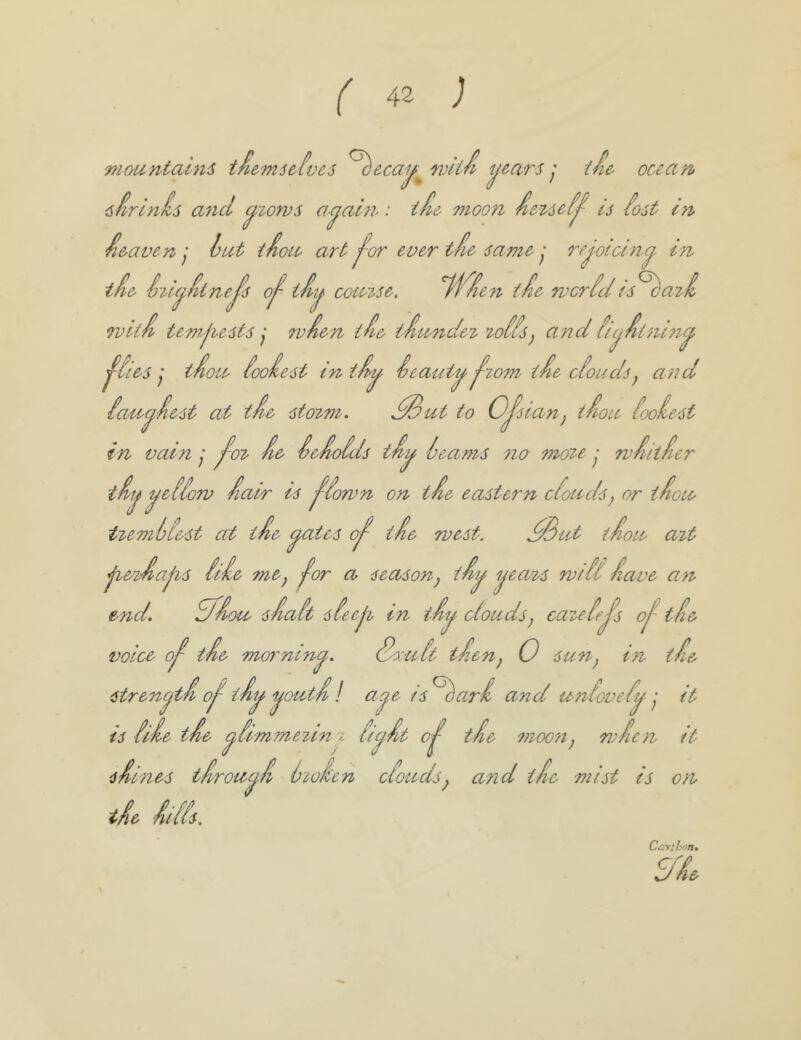 ( 42 )
mountains themselves decay with years; the ocean
shrinks and grows again: the moon herself is lost in
heaven; but thou art for ever the same; rejoicing in
the brightneſs of thy course. When the world is dark
with tempests; when the thunder rolls, and lightning
flies; thou lookest in thy beauty from the clouds, and
laughest at the storm. But to Oſsian, thou lookest
in vain; for he beholds thy beams no more; whither
thy yellow hair is flown on the eastern clouds, or thou
tremblest at the gates of the west. But thou art
perhaps like me, for a season, thy years will have an
end. Thou shalt sleep in thy clouds, careleſs of the
voice of the morning. Exult then, O sun, in the
strength of thy youth! age is dark and unlovely; it
is like the glimmering light of the moon, when it
shines through broken clouds, and the mist is on
the hills.
Carthon.
The